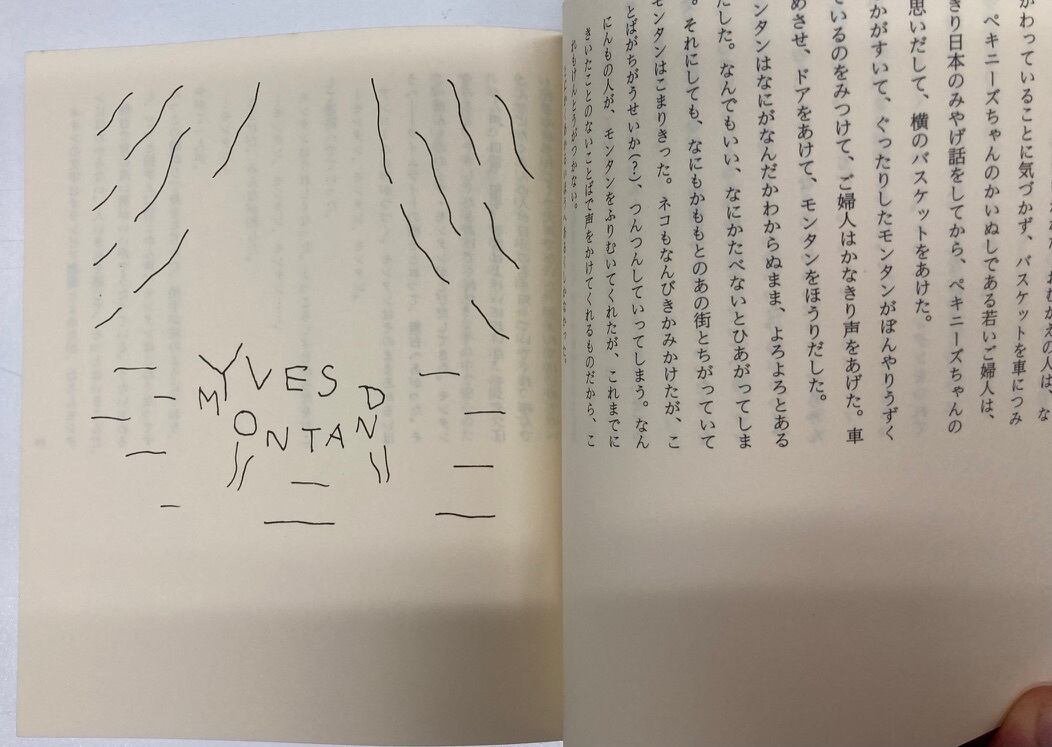 YVES
MONTAND
おむかえの人は、な
かわっていることに気づかず、バスケットを車につみ
ペキニーズちゃんのかいぬしである若いご婦人は、
きり日本のみやげ話をしてから、ペキニーズちゃんの
思いだして、横のバスケットをあけた。
かがすいて、ぐったりしたモンタンがぼんやりうずく
ているのをみつけて、ご婦人はかなきり声をあげた。車
めさせ、ドアをあけて、モンタンをほうりだした。
ンタンはなにがなんだかわからぬまま、よろよろとある
だした。なんでもいい、なにかたべないとひあがってしま
。それにしても、なにもかももとのあの街とちがっていて
モンタンはこまりきった。ネコもなんびきかみかけたが、こ
とばがちがうせいか(?)、つんつんしていってしまう。なん
にんもの人が、モンタンをふりむいてくれたが、これまでに
きいたことのないことばで声をかけてくれるものだから、こ
れもけんとうがつかない。